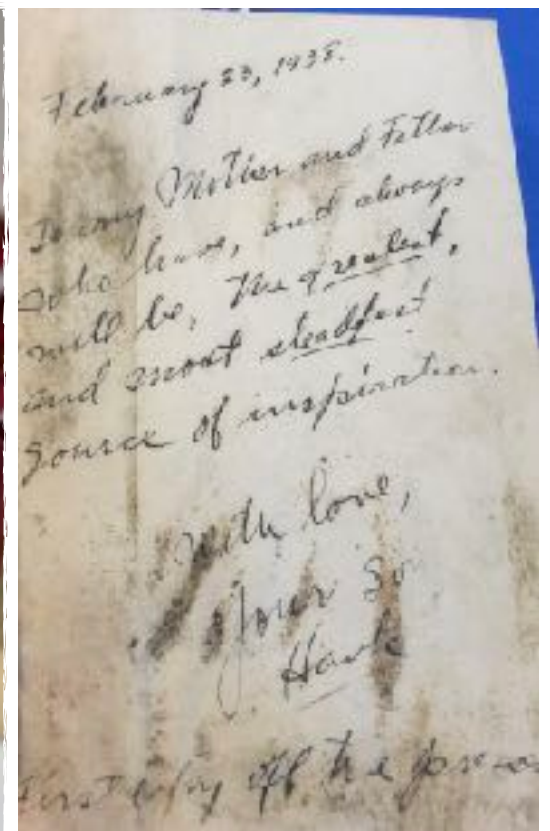 February 23, 1938.
To my Mother and Father
who have, and always
will be, the greatest,
and most steadfast
source of inspiration.
With love,
Your So
First copy off the press